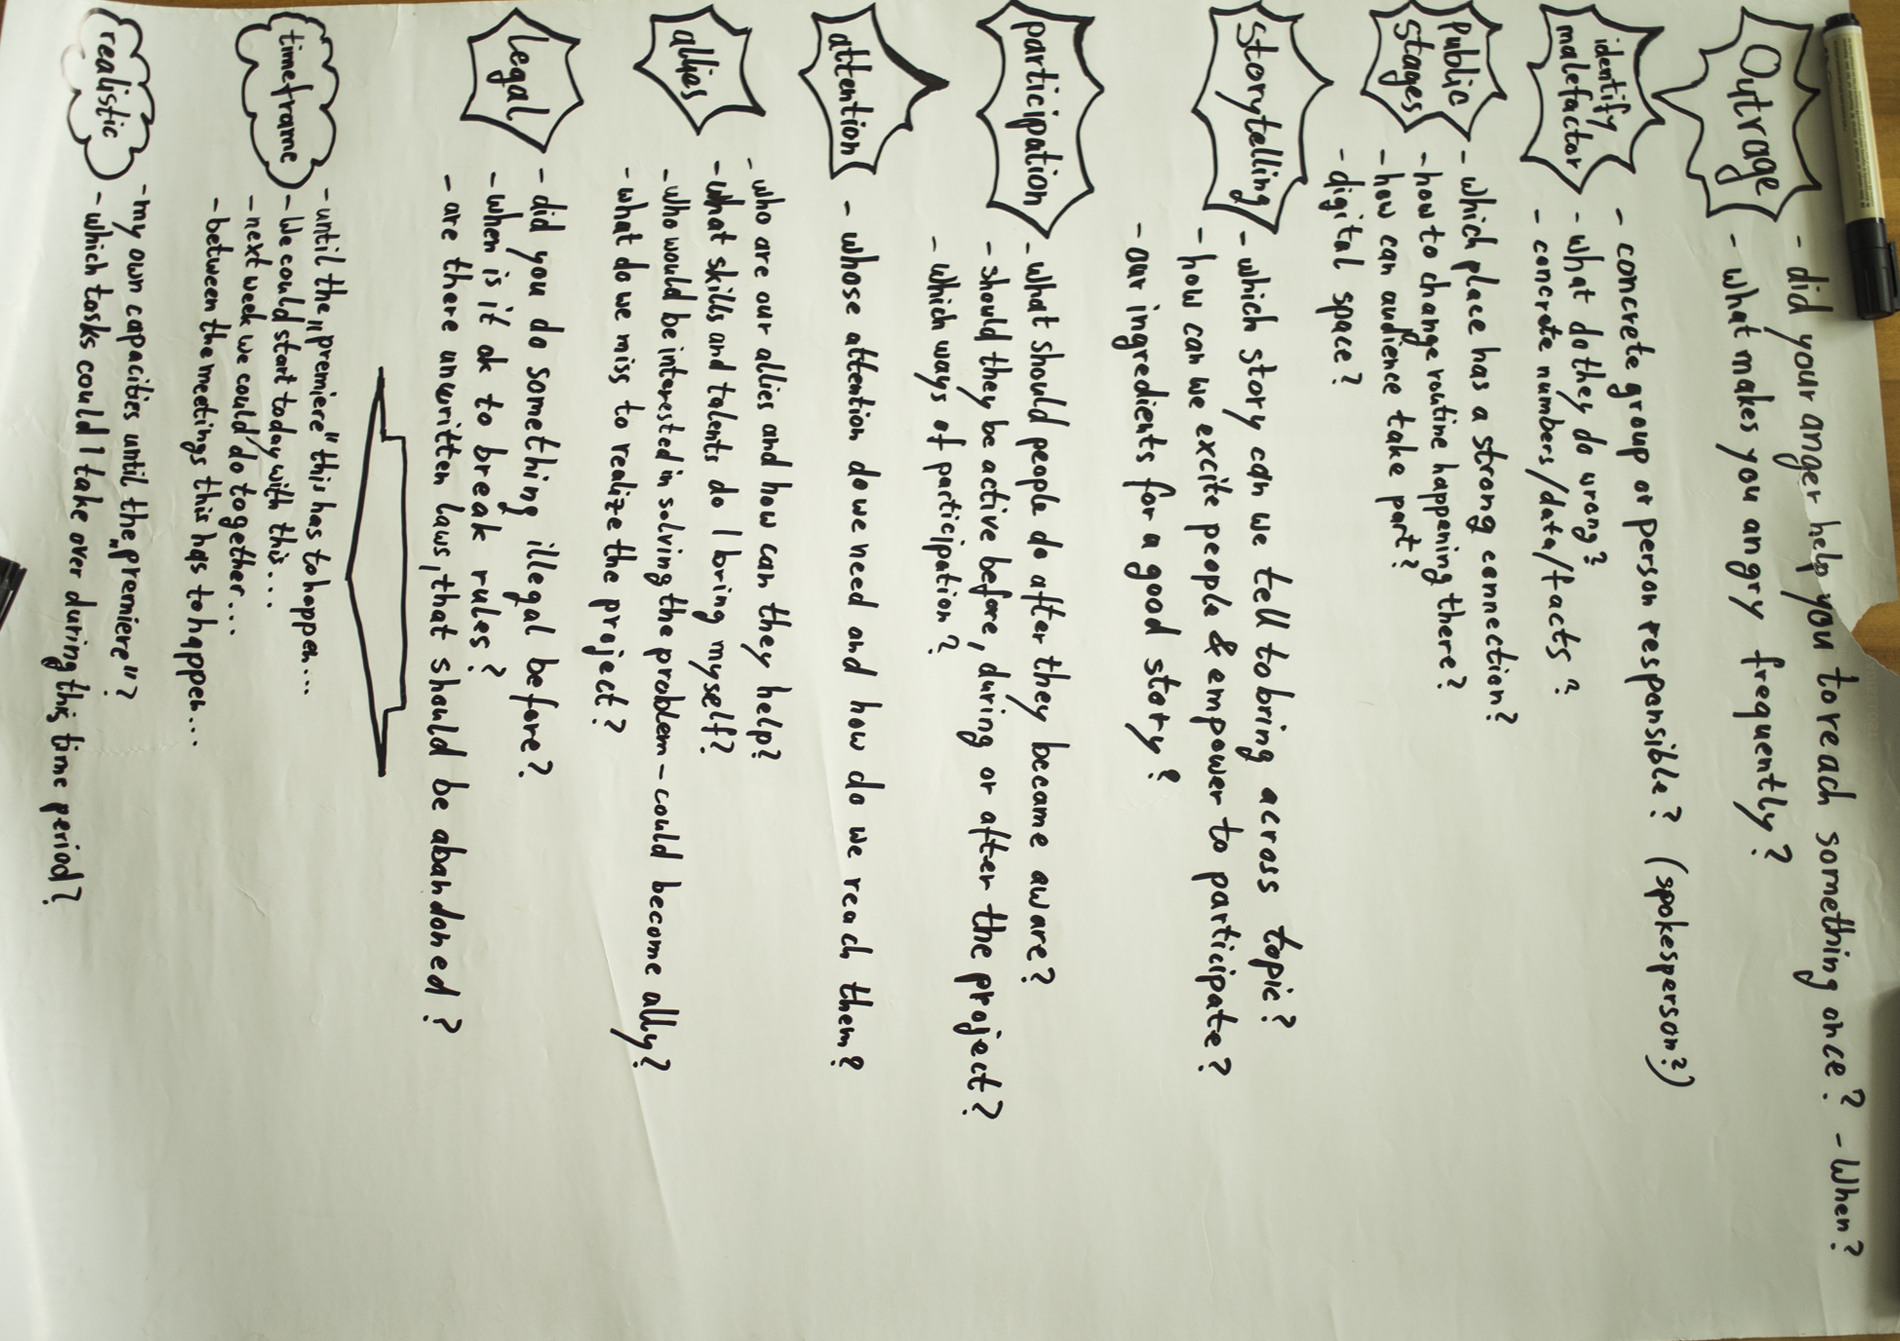 Outrage
- did your anger help you to reach something once? - When?
- what makes you angry frequently?
identify
malefactor
- concrete group or person responsible? (spokesperson??)
- what do they do wrong?
- concrete numbers/data/facts?
Public
stages
- which place has a strong connection?
- how to change routine happening there?
- how can audience take part?
- digital space?
Storytelling
- which story can we tell to bring across topic?
- how can we excite people & empower to participate?
- our ingredients for a good story?
participation
- what should people do after they became aware?
- should they be active before, during or after the project?
- which ways of participation?
attention
- whose attention do we need and how do we reach them?
allies
- who are our allies and how can they help?
- what skills and talents do I bring myself?
- who would be interested in solving the problem - could become ally?
- what do we miss to realize the project?
legal
- did you do something illegal before?
- when is it ok to break rules?
- are there unwritten laws, that should be abandoned?
timeframe
- until the „premiere" this has to happen...
- We could start today with this...
- next week we could do together...
- between the meetings this has to happen...
realistic
- my own capacities until the „premiere"?
- which tasks could I take over during this time period?